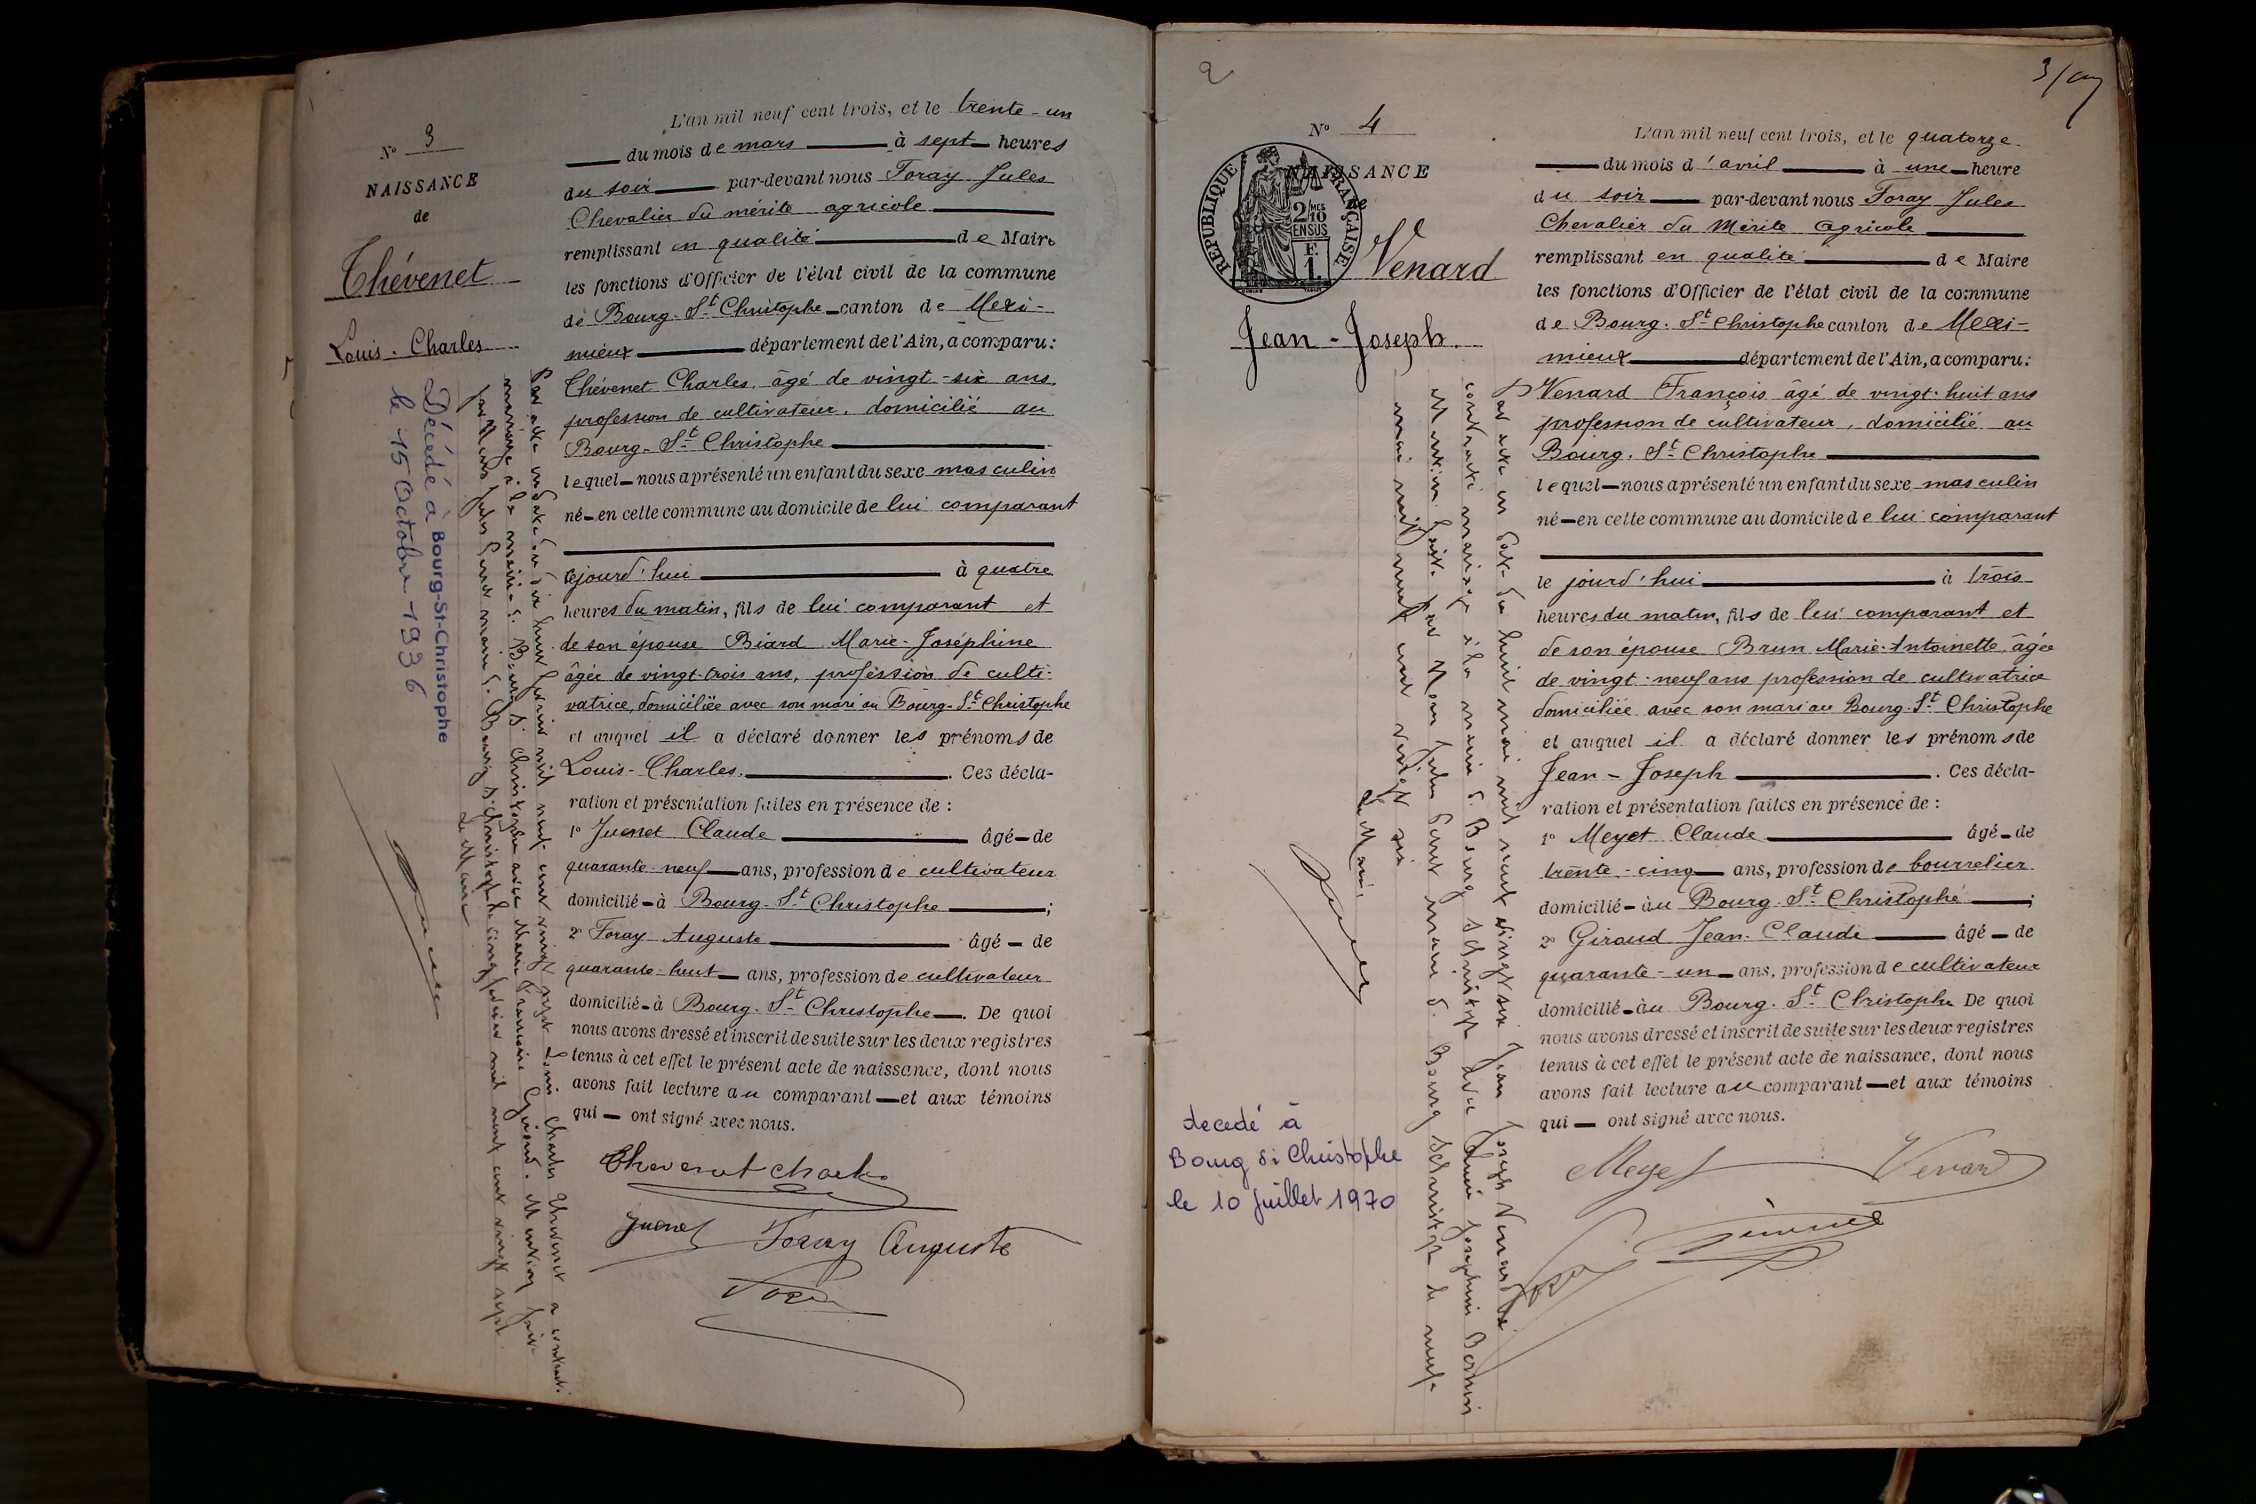 L'an mil neuf cent trois, et le trente-un
du mois de mars à sept heures
du soir par-devant nous Foray Jules
Chevalier du mérite agricole
remplissant en qualité de Maire
les fonctions d'Officier de l'état civil de la commune
de Bourg-St Christophe canton de Mexi-
mieux département de l'Ain, a comparu:
Thévenet Charles, âgé de vingt-six ans,
profession de cultivateur, domicilié au
Bourg-St Christophe
lequel nous a présenté un enfant du sexe masculin
né en cette commune au domicile de lui comparant
cejourd'hui à quatre
heures du matin, fils de lui comparant et
de son épouse Biard Marie-Joséphine
âgée de vingt-trois ans, profession de culti-
vatrice, domiciliée avec son mari au Bourg-St Christophe
et auquel il a déclaré donner les prénoms de
Louis-Charles. Ces décla-
ration et présentation faites en présence de :
1° Juenet Claude âgé de
quarante-neuf ans, profession de cultivateur
domicilié à Bourg-St Christophe ;
2° Foray Auguste âgé de
quarante-huit ans, profession de cultivateur
domicilié à Bourg-St Christophe. De quoi
nous avons dressé et inscrit de suite sur les deux registres
tenus à cet effet le présent acte de naissance, dont nous
avons fait lecture au comparant et aux témoins
qui ont signé avec nous.
Thevenet Charles
Juenet Foray Auguste
Foray
N° 3
NAISSANCE
de
Thévenet
Louis-Charles
Par acte en date du cinq février mil neuf cent vingt sept Louis Charles Thévenet a contracté
mariage à la mairie de Bourg St Christophe avec Marie Françoise Girard. Mention faite
par Nous Jules Gent maire de Bourg St Christophe le cinq février mil neuf cent vingt sept
Le Maire
Décédé à Bourg-St-Christophe
le 15 Octobre 1996
2
3/
N° 4
NAISSANCE
de
RÉPUBLIQUE FRANÇAISE
2 MES 10
EN SUS
F.
1.
Venard
Jean-Joseph
L'an mil neuf cent trois, et le quatorze
du mois d'avril à une heure
du soir par-devant nous Foray Jules
Chevalier du Mérite Agricole
remplissant en qualité de Maire
les fonctions d'Officier de l'état civil de la commune
de Bourg-St Christophe canton de Mexi-
mieux département de l'Ain, a comparu:
Venard François âgé de vingt-huit ans
profession de cultivateur, domicilié au
Bourg-St Christophe
lequel nous a présenté un enfant du sexe masculin
né en cette commune au domicile de lui comparant
le jourd'hui à trois
heures du matin, fils de lui comparant et
de son épouse Brun Marie-Antoinette âgée
de vingt-neuf ans profession de cultivatrice
domiciliée avec son mari au Bourg-St Christophe
et auquel il a déclaré donner les prénoms de
Jean-Joseph. Ces décla-
ration et présentation faites en présence de :
1° Meyet Claude âgé de
trente-cinq ans, profession de bourrelier
domicilié au Bourg-St Christophe ;
2° Giraud Jean-Claude âgé de
quarante-un ans, profession de cultivateur
domicilié au Bourg-St Christophe De quoi
nous avons dressé et inscrit de suite sur les deux registres
tenus à cet effet le présent acte de naissance, dont nous
avons fait lecture au comparant et aux témoins
qui ont signé avec nous.
Meyet Venard
Foray
Par acte en date du huit mai mil neuf cent vingt six Jean Joseph Venard a
contracté mariage à la mairie de Bourg St Christophe avec Joséphine
Mention faite par Nous Jules Gent maire de Bourg St Christophe le neuf
mai mil neuf cent vingt six
Le Maire,
decedé à
Bourg St Christophe
le 10 juillet 1970